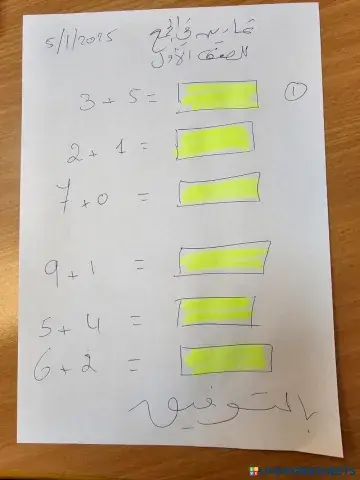 5/1/2025 تمارين في الجمع
الصف الأول
3 + 5 = ①
2 + 1 =
7 + 0 =
9 + 1 =
5 + 4 =
6 + 2 =
بالتوفيق